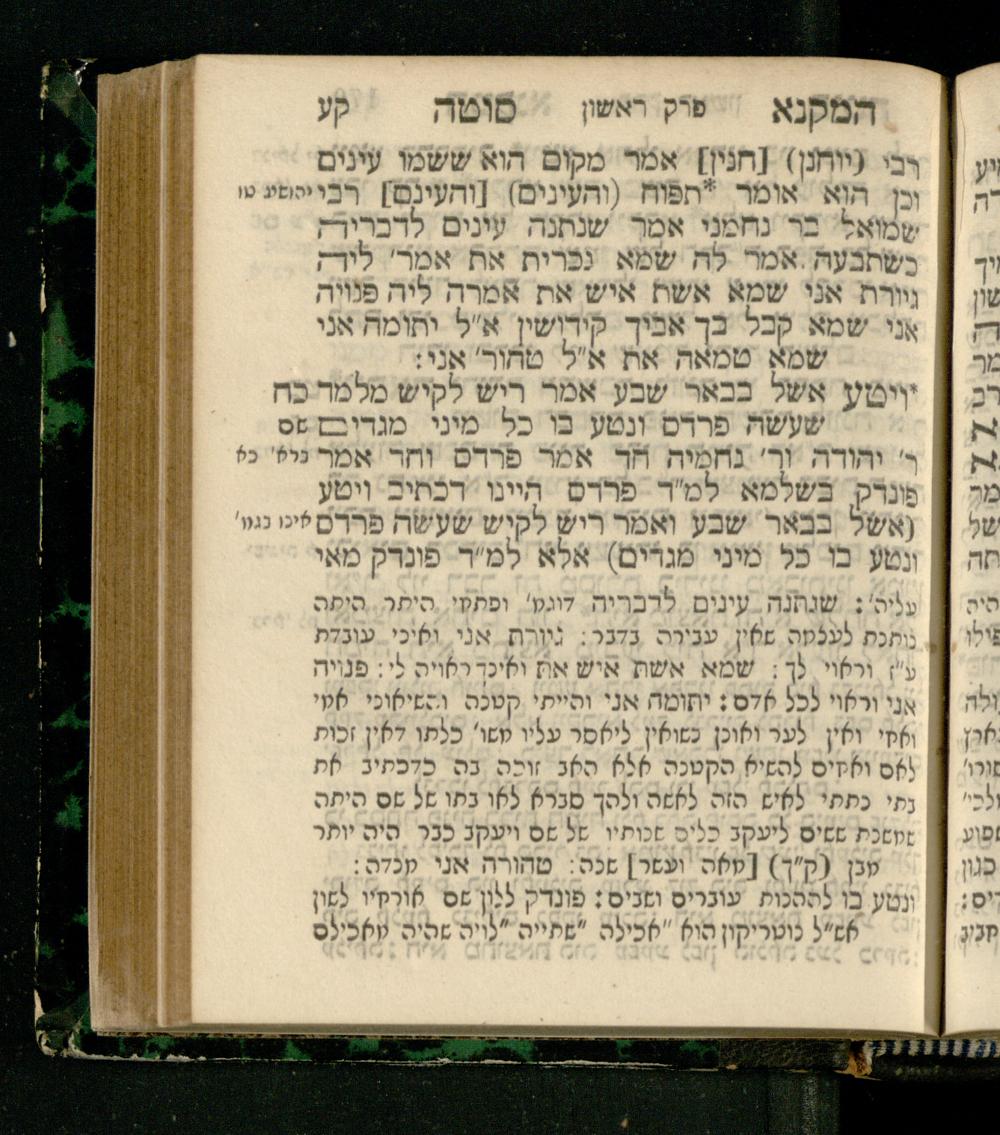 המקנא פרק ראשון סוטה קע
רבי (יוחנן) [חנין] אמר מקום הוא ששמו עינים
וכן הוא אומר *תפוח (והעינים) [והעינם] רבי יהושע טו
שמואל בר נחמני אמר שנתנה עינים לדבריה
כשתבעה אמר לה שמא נכרית את אמר' ליה
גיורת אני שמא אשת איש את אמרה ליה פנויה
אני שמא קבל בך אביך קידושין א"ל יתומה אני
שמא טמאה את א"ל טהור' אני:
*ויטע אשל בבאר שבע אמר ריש לקיש מלמד כח
שעשה פרדס ונטע בו כל מיני מגדים שם
ר' יהודה ור' נחמיה חד אמר פרדס וחד אמר ברא' כא
פונדק בשלמא למ"ד פרדס היינו דכתיב ויטע
(אשל בבאר שבע ואמר ריש לקיש שעשה פרדס אינו בגמ'
ונטע בו כל מיני מגדים) אלא למ"ד פונדק מאי
עליה': שנתנה עינים לדבריה דוגמ' ופתחי היתר היתה
נותנת לעצמה שאין עבירה בדבר: גיורת אני ואיני עובדת
ע"ז וראוי לך: שמא אשת איש את ואינך ראויה לי: פנויה
אני וראוי לכל אדם: יתומה אני והייתי קטנה והשיאוני אמי
ואחי ואין לער ואונן נשואין ליאסר עליו משו' כלתו דאין זכות
לאם ואחים להשיא הקטנה אלא האב זוכה בה כדכתיב את
בתי נתתי לאיש הזה לאשה ולהך סברא לאו בתו של שם היתה
שמשכת ששים ליעקב כלים שנותיו של שם ויעקב כבר היה יותר
מבן (ק"ך) [מאה ועשר] שנה: טהורה אני מנדה:
ונטע בו לההנות עוברים ושבים: פונדק ללון שם אורחיו לשון
אש"ל נוטריקון הוא "אכילה "שתייה "לויה שהיה מאכילם